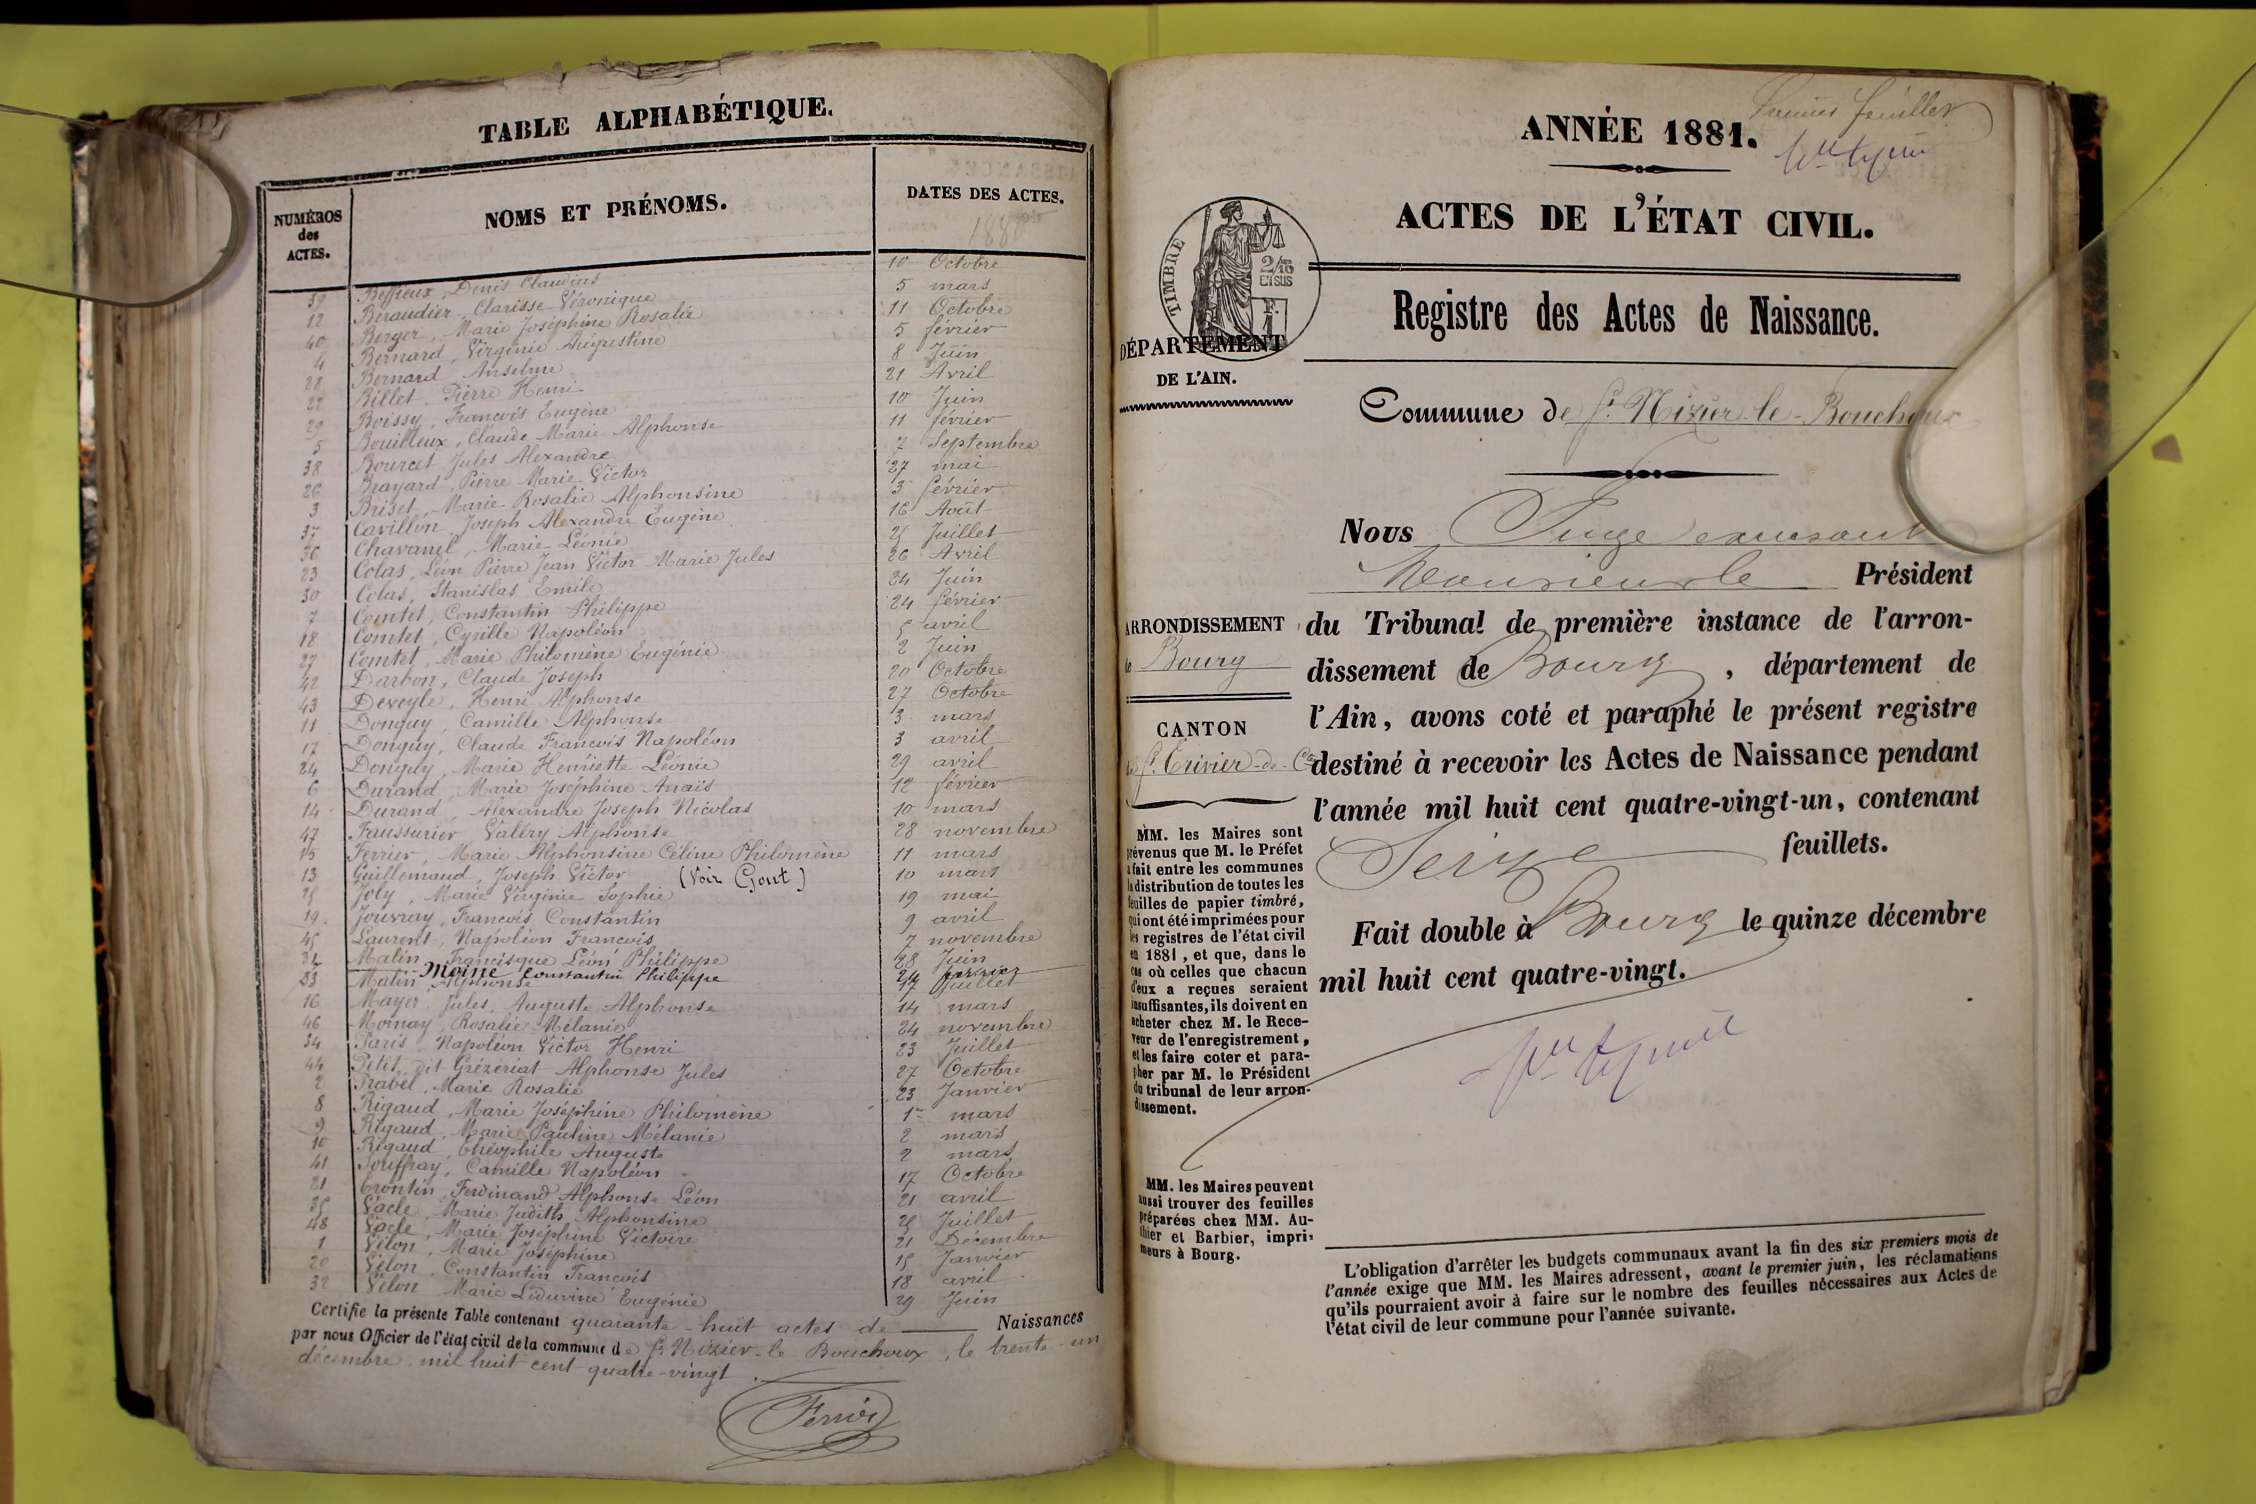 TABLE ALPHABÉTIQUE.
NUMÉROS des ACTES.
NOMS ET PRÉNOMS.
DATES DES ACTES.
39 Beffieux, Denis Claudius 10 Octobre
12 Béraudier, Clarisse Véronique 5 mars
40 Berger, Marie Joséphine Rosalie 11 Octobre
4 Bernard, Virginie Augustine 5 février
28 Bernard Anselme 8 Juin
22 Billet, Pierre Henri 21 Avril
29 Boissy, François Eugène 10 Juin
5 Bouilloux, Claude Marie Alphonse 11 février
38 Bourcet Jules Alexandre 7 Septembre
26 Brayard, Pierre Marie Victor 27 mai
3 Briset, Marie Rosalie Alphonsine 3 février
37 Cavillon, Joseph Alexandre Eugène 16 Août
36 Chavanel, Marie Léonie 25 Juillet
23 Colas, Léon Pierre Jean Victor Marie Jules 26 Avril
30 Colas, Stanislas Emile 24 Juin
7 Comtet, Constantin Philippe 24 février
18 Comtet, Cyrille Napoléon 5 avril
27 Comtet, Marie Philomène Eugénie 2 Juin
42 Darbon, Claude Joseph 20 Octobre
43 Deveyle, Henri Alphonse 27 Octobre
11 Donguy, Camille Alphonse 3 mars
17 Donguy, Claude François Napoléon 3 avril
24 Donguy, Marie Henriette Léonie 29 avril
6 Durand, Marie Joséphine Anaïs 12 février
14 Durand, Alexandre Joseph Nicolas 10 mars
47 Faussurier, Valéry Alphonse 28 novembre
15 Ferrier, Marie Alphonsine Céline Philomène 11 mars
13 Guillemaud, Joseph Victor (Voir Gout) 10 mars
25 Joly, Marie Virginie Sophie 19 mai
19 Jouvray, François Constantin 9 avril
45 Laurent, Napoléon François 7 novembre
31 Matin, Francisque Léon Philippe 28 Juin
Moine Constantin Philippe 24 février
33 Matin Alphonse 17 Juillet
16 Mayer, Jules Auguste Alphonse 14 mars
46 Moinay, Rosalie Mélanie 24 novembre
34 Paris Napoléon Victor Henri 23 Juillet
44 Petit, dit Grézériat Alphonse Jules 27 Octobre
2 Prabel, Marie Rosalie 23 Janvier
8 Rigaud, Marie Joséphine Philomène 1er mars
9 Rigaud, Marie Pauline Mélanie 2 mars
10 Rigaud, Théophile Auguste 2 mars
41 Souffray, Camille Napoléon 17 Octobre
21 Trontin, Ferdinand Alphonse Léon 21 avril
35 Vacle, Marie Judith Alphonsine 25 Juillet
48 Vacle, Marie Joséphine Victoire 21 Décembre
1 Vélon, Marie Joséphine 15 Janvier
20 Vélon, Constantin François 18 avril
32 Vélon Marie Liduvine Eugénie 29 Juin
Certifie la présente Table contenant quarante-huit actes de Naissances
par nous Officier de l'état civil de la commune de St Nizier-le-Bouchoux, le trente-un
décembre mil huit cent quatre-vingt.
Ferrier
ANNÉE 1881.
ACTES DE L'ÉTAT CIVIL.
TIMBRE
2/10
EN SUS
F.
1
Registre des Actes de Naissance.
DÉPARTEMENT
DE L'AIN.
Commune de St Nizier-le-Bouchoux
Nous Juge exerçant
Monsieur le Président
ARRONDISSEMENT
de Bourg
du Tribunal de première instance de l'arron-
dissement de Bourg, département de
l'Ain, avons coté et paraphé le présent registre
CANTON
de St Trivier-de-Ctes
destiné à recevoir les Actes de Naissance pendant
l'année mil huit cent quatre-vingt-un, contenant
Seize feuillets.
Fait double à Bourg le quinze décembre
mil huit cent quatre-vingt.
MM. les Maires sont
prévenus que M. le Préfet
a fait entre les communes
la distribution de toutes les
feuilles de papier timbré,
qui ont été imprimées pour
les registres de l'état civil
en 1881, et que, dans le
cas où celles que chacun
d'eux a reçues seraient
insuffisantes, ils doivent en
acheter chez M. le Rece-
veur de l'enregistrement,
et les faire coter et para-
pher par M. le Président
du tribunal de leur arron-
dissement.
MM. les Maires peuvent
aussi trouver des feuilles
préparées chez MM. Au-
thier et Barbier, impri-
meurs à Bourg.
L'obligation d'arrêter les budgets communaux avant la fin des six premiers mois de
l'année exige que MM. les Maires adressent, avant le premier juin, les réclamations
qu'ils pourraient avoir à faire sur le nombre des feuilles nécessaires aux Actes de
l'état civil de leur commune pour l'année suivante.